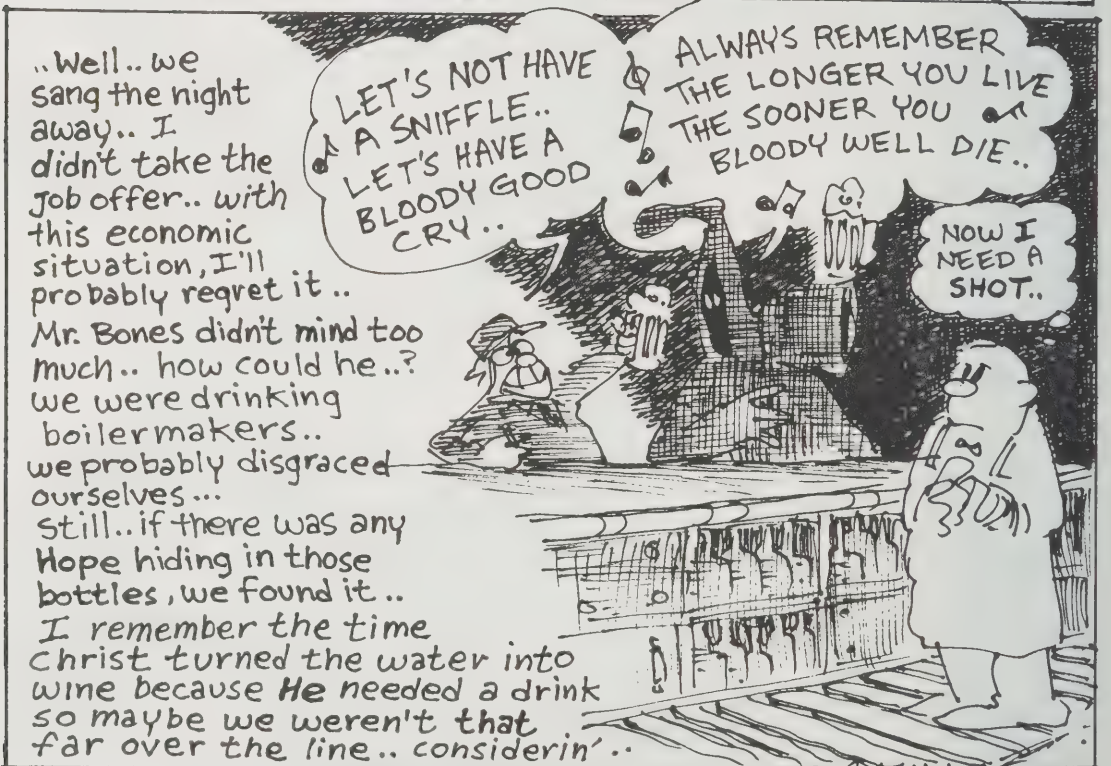 ..Well.. we
sang the night
away.. I
didn't take the
job offer.. with
this economic
situation, I'll
probably regret it ..
Mr. Bones didn't mind too
much.. how could he..?
we were drinking
boilermakers..
we probably disgraced
ourselves...
still.. if there was any
Hope hiding in those
bottles, we found it ..
I remember the time
Christ turned the water into
wine because He needed a drink
so maybe we weren't that
far over the line.. considerin'..
LET'S NOT HAVE
A SNIFFLE..
LET'S HAVE A
BLOODY GOOD
CRY..
ALWAYS REMEMBER
THE LONGER YOU LIVE
THE SOONER YOU
BLOODY WELL DIE..
NOW I
NEED A
SHOT..